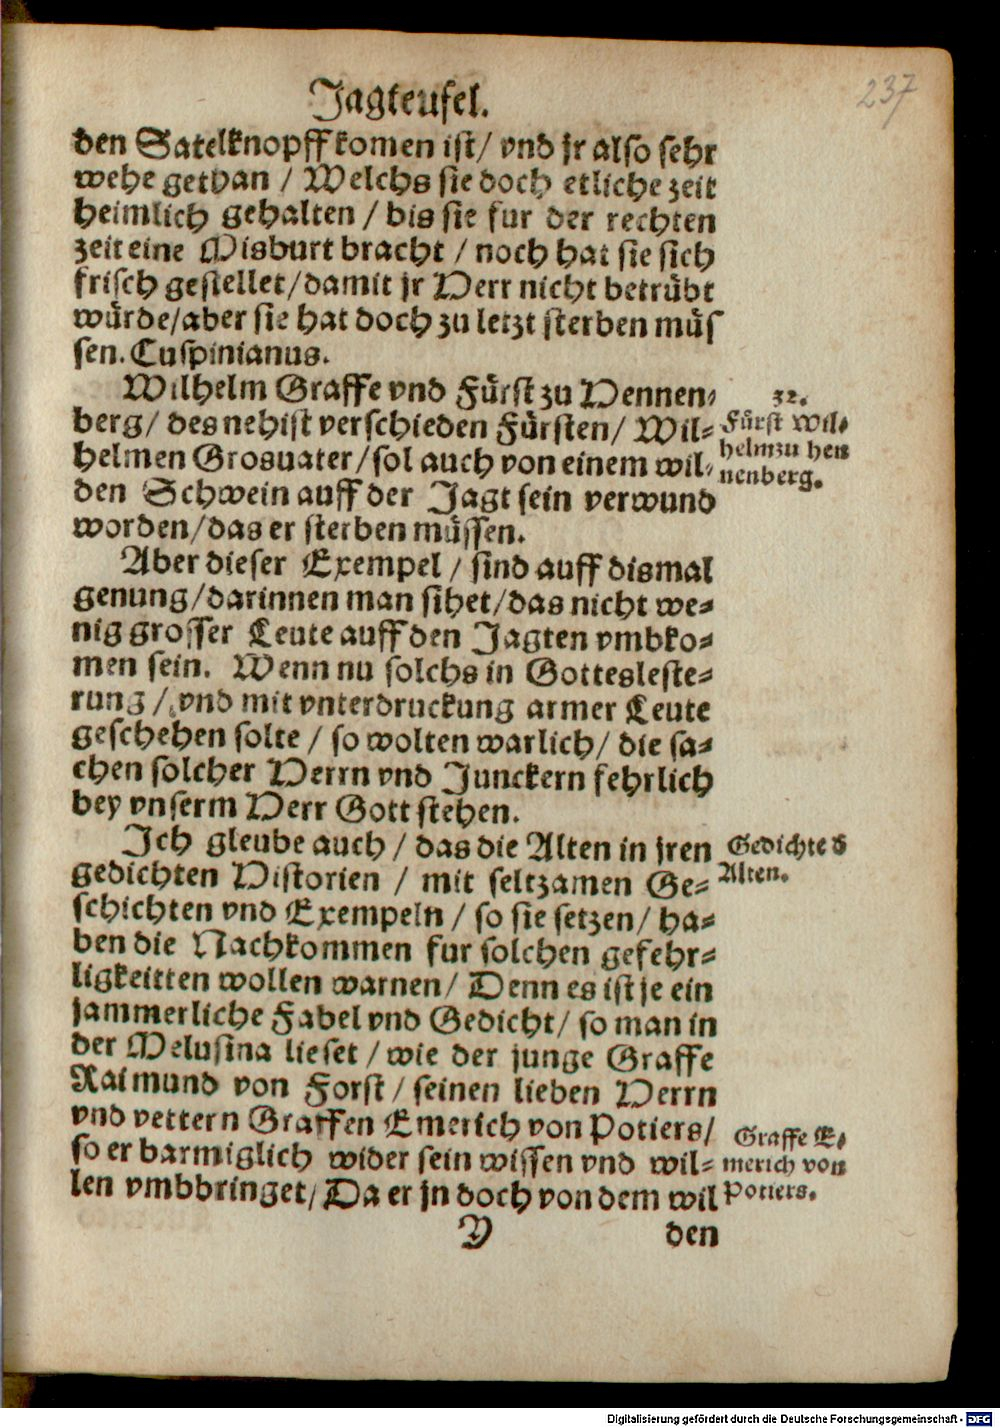 237
Jagteufel.
den Satelknopff komen ist/ vnd jr also sehr
wehe gethan / Welchs sie doch etliche zeit
heimlich gehalten / bis sie fur der rechten
zeit eine Misburt bracht / noch hat sie sich
frisch gestellet/damit jr Herr nicht betrübt
würde/aber sie hat doch zu letzt sterben müs
sen. Cuspinianus.
Wilhelm Graffe vnd Fürst zu Hennen-
berg/ des nehist verschieden Fürsten/ Wil-
helmen Grosuater/sol auch von einem wil-
den Schwein auff der Jagt sein verwund
worden/das er sterben müssen.
32.
Fürst Wil-
helm zu hen
nenberg.
Aber dieser Exempel / sind auff dismal
genung/darinnen man sihet/das nicht we-
nig grosser Leute auff den Jagten vmbko-
men sein. Wenn nu solchs in Gotteslester-
rung / vnd mit vnterdruckung armer Leute
geschehen solte / so wolten warlich/ die sa-
chen solcher Herrn vnd Junckern fehrlich
bey vnserm Herr Gott stehen.
Ich gleube auch / das die Alten in jren
gedichten Historien / mit seltzamen Ge-
schichten vnd Exempeln / so sie setzen/ ha-
ben die Nachkommen fur solchen gefehr-
ligkeitten wollen warnen/ Denn es ist je ein
jammerliche Fabel vnd Gedicht/ so man in
der Melusina lieset / wie der junge Graffe
Raimund von Forst / seinen lieben Herrn
vnd vettern Graffen Emerich von Potiers/
so er barmiglich wider sein wissen vnd wil-
len vmbbringet/ Da er jn doch von dem wil
Gedichte d
Alten.
Graffe E-
merich von
Potiers.
H
den
Digitalisierung gefördert durch die Deutsche Forschungsgemeinschaft - DFG